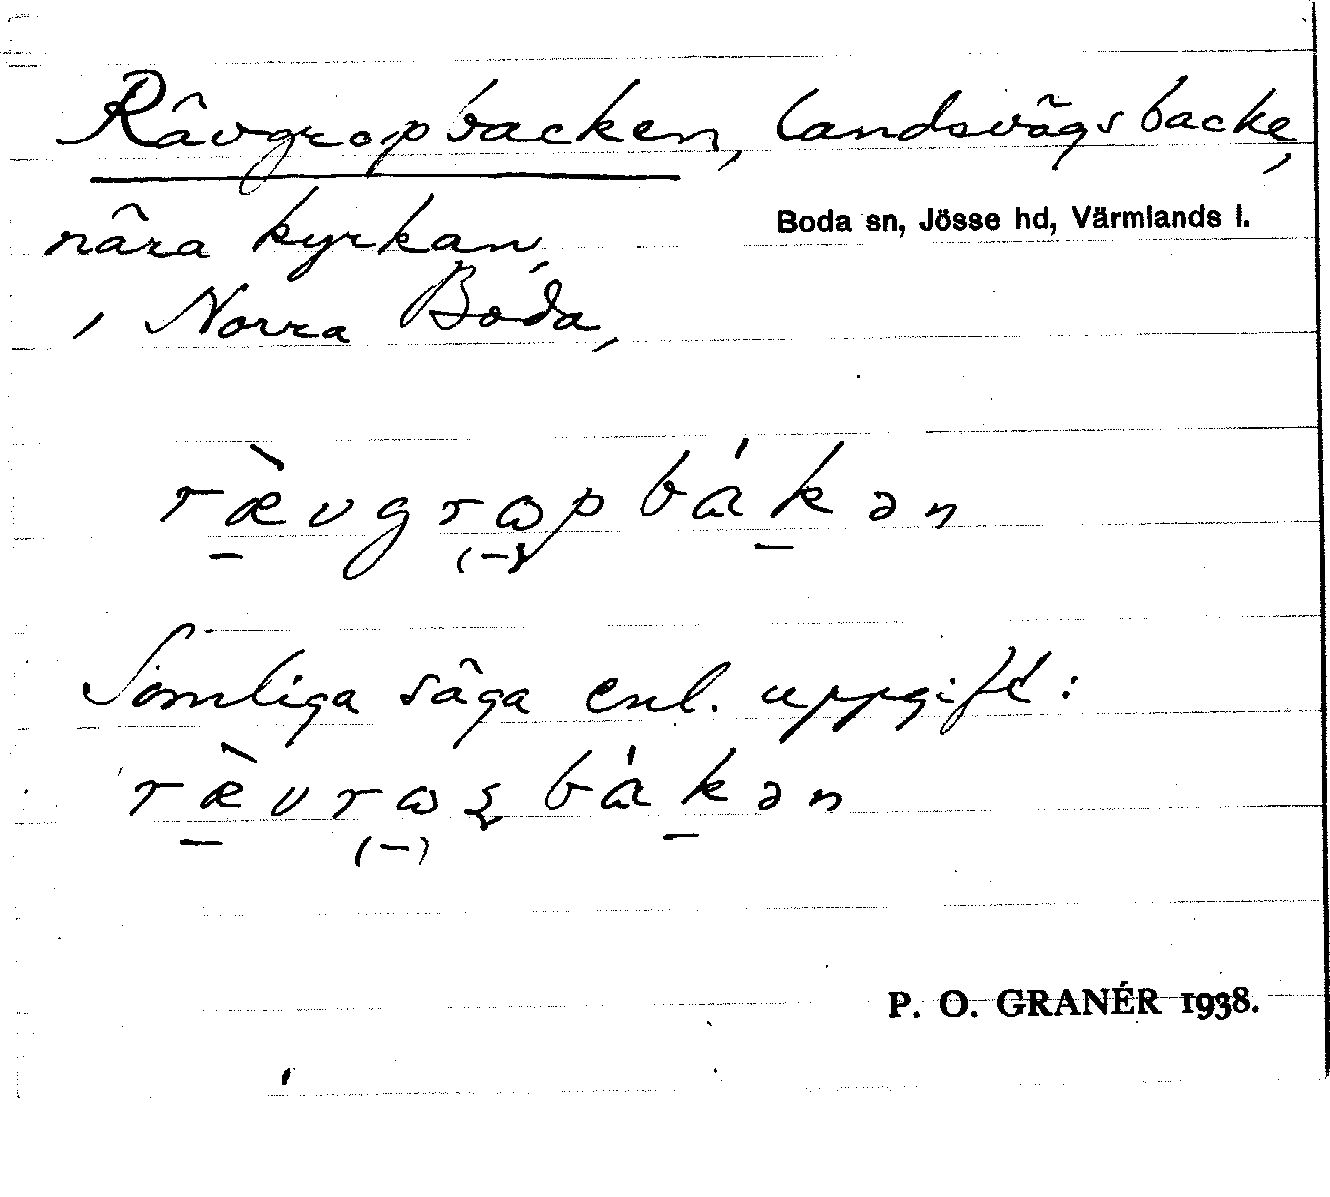 Rävgropbacken, landsvägsbacke,
nära kyrkan,
Boda sn, Jösse hd, Värmlands l.
i Norra Boda,
ræ̀vgrɷpbákən
Somliga säga enl. uppgift:
P. O. GRANÉR 1938.